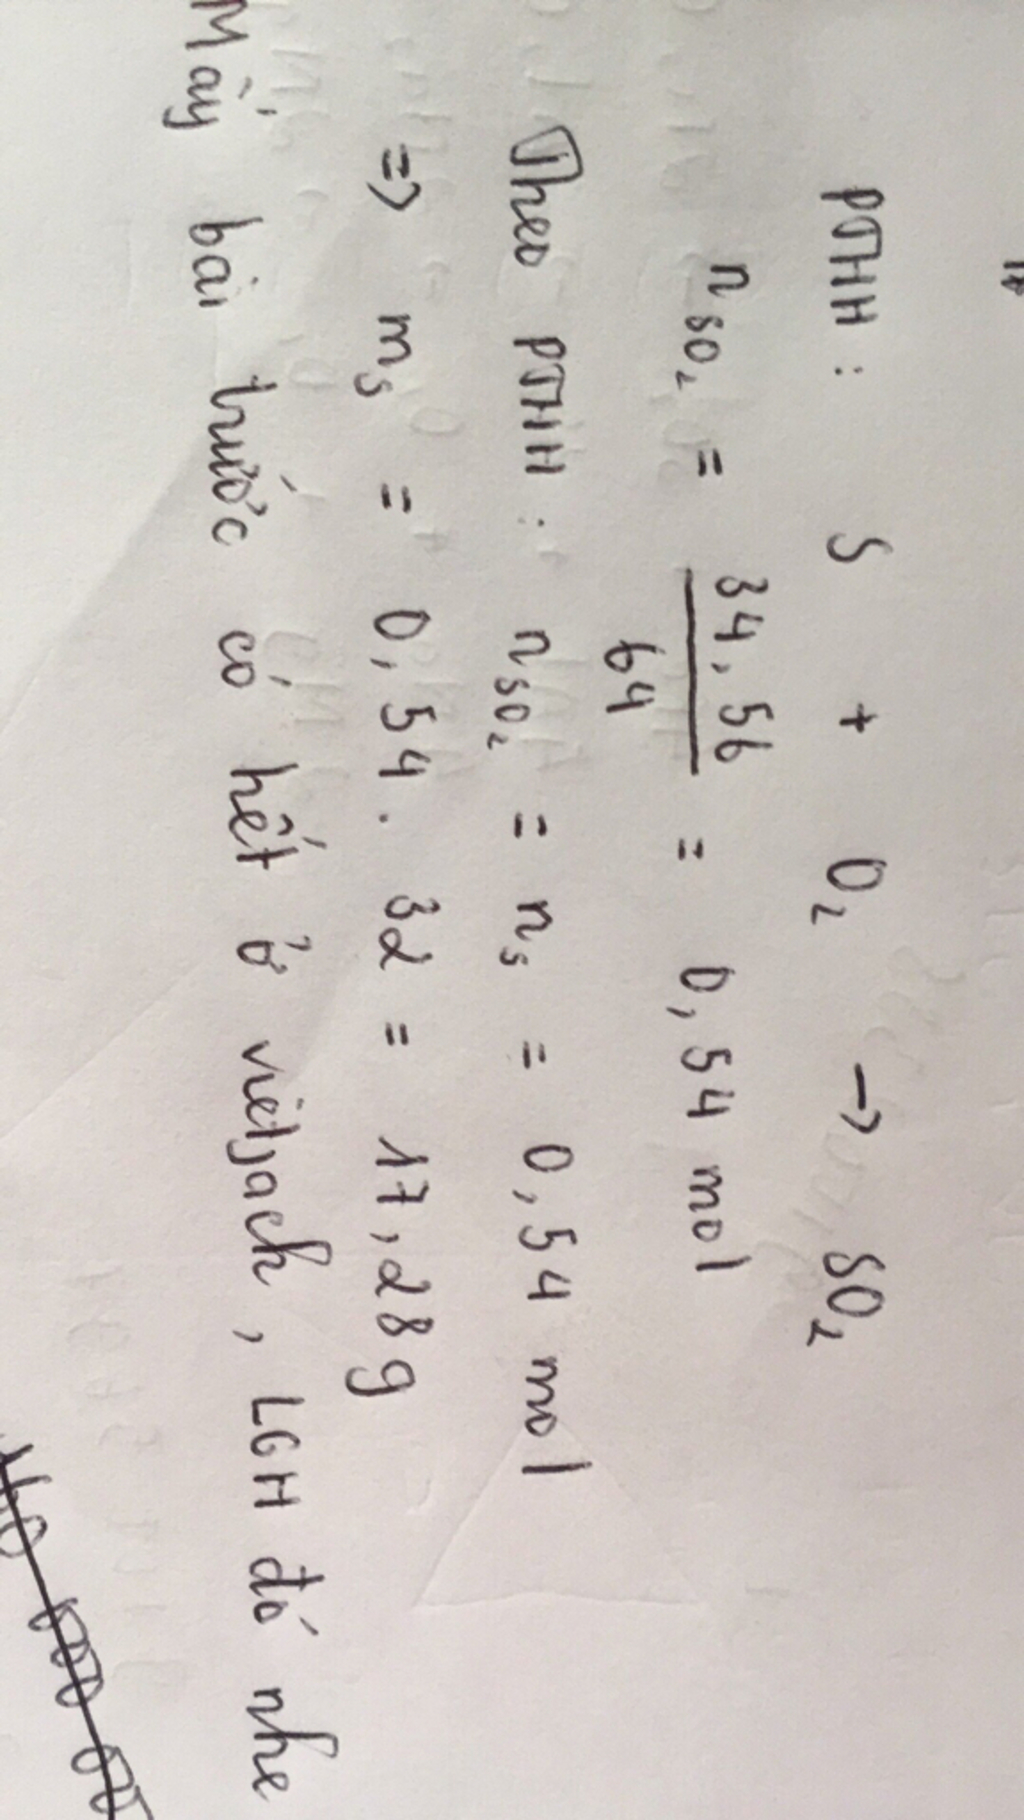 PTHH : S + O₂ → SO₂
n SO₂ = 34,56 / 64 = 0,54 mol
Theo PTHH : n SO₂ = n S = 0,54 mol
=> m S = 0,54 . 32 = 17,28 g
Mấy bài trước có hết ở vietjack, LGH đó nhe